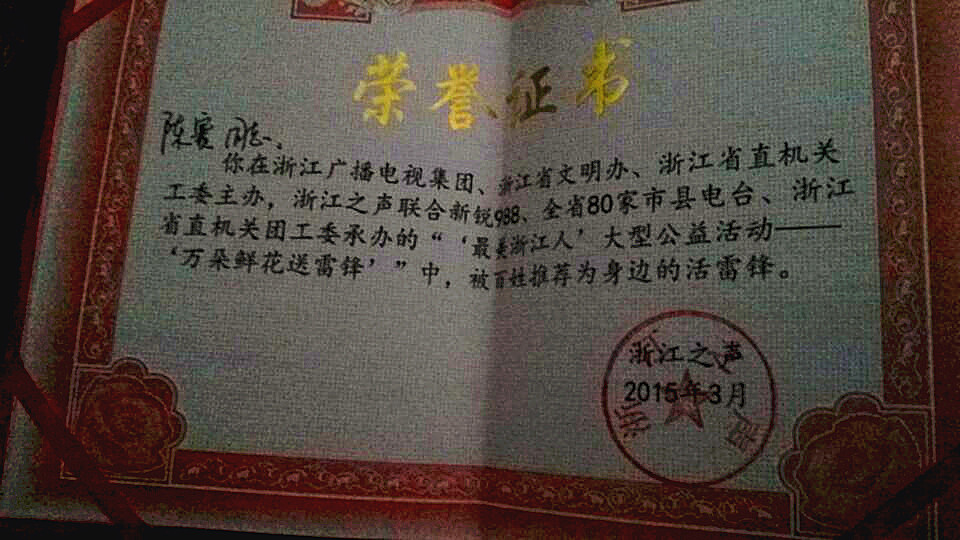 荣誉证书
陈霞同志:
你在浙江广播电视集团、浙江省文明办、浙江省直机关
工委主办，浙江之声联合新锐988、全省80家市县电台、浙江
省直机关团工委承办的“‘最美浙江人’大型公益活动——
‘万朵鲜花送雷锋’”中，被百姓推荐为身边的活雷锋。
浙江之声
2015年3月
浙江之声